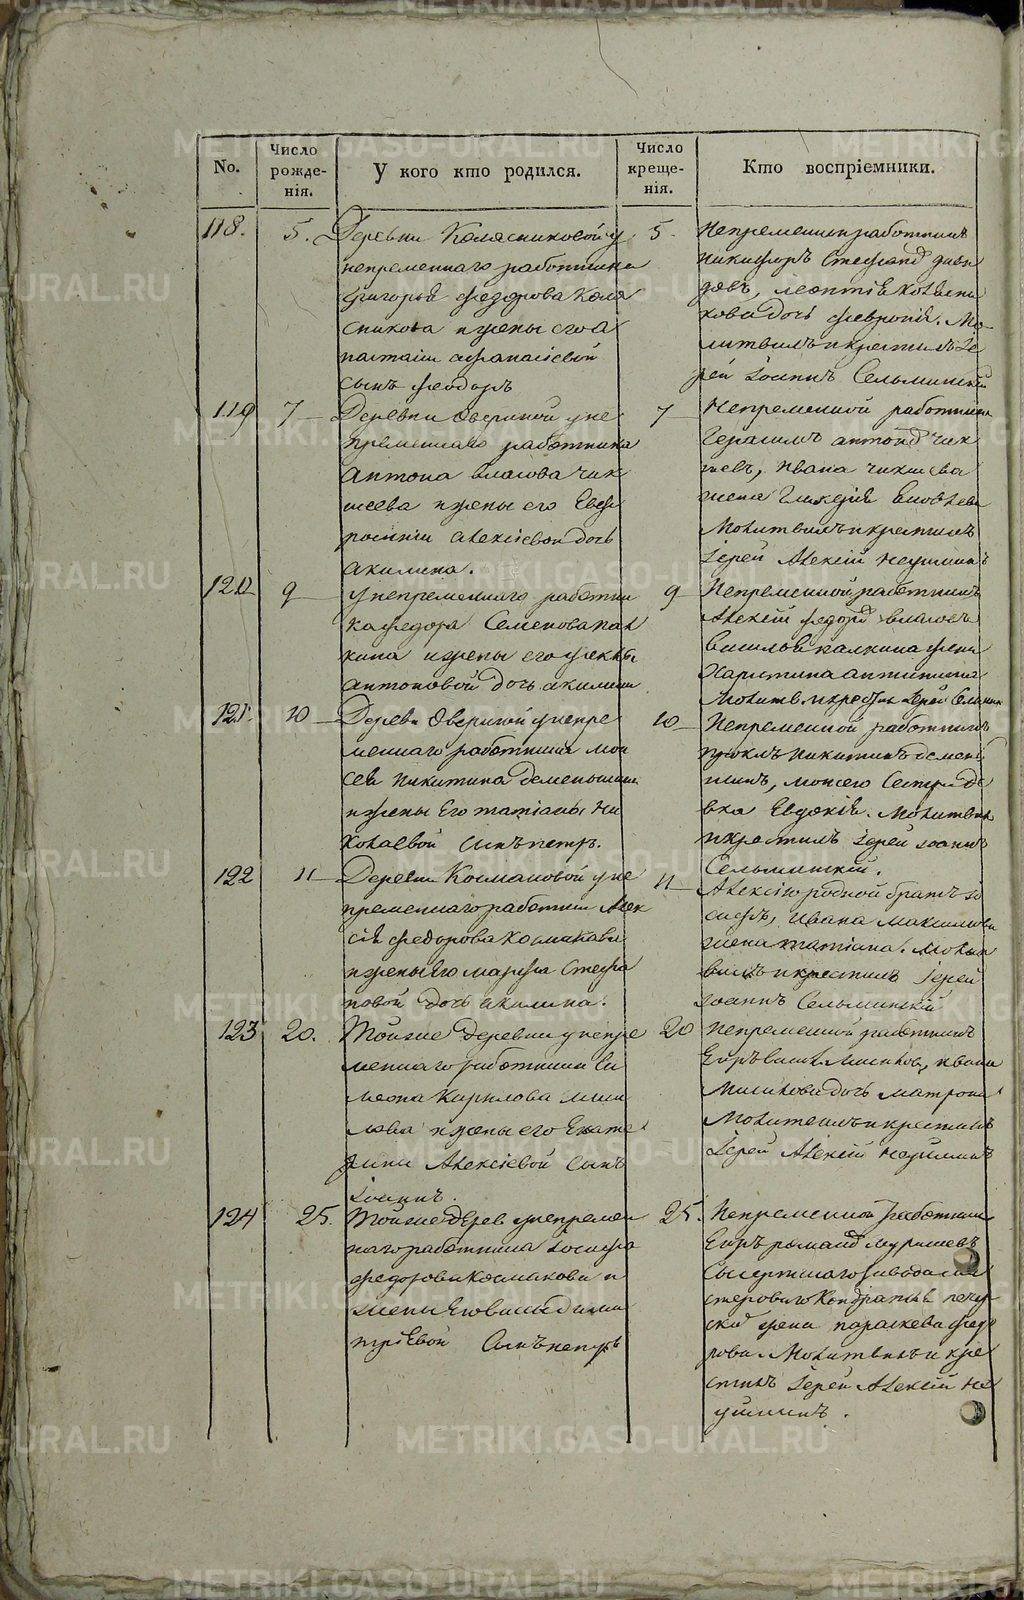 No.
Число рожденія.
У кого кто родился.
Число крещенія.
Кто воспріемники.
118.
5.
Деревни Колясниковой у
непременнаго работника
Григорья Федорова Коля
сникова и жены его А
настасіи Афанасіевой
сынъ Феодоръ
5
Непременны работникъ
Никифоръ
Леонтія
дочь Февронія. Мо
литвилъ и крестилъ Іе
рей Іоаннъ Сельминскій
119
7
Деревни Овериной у не
пременнаго работника
Антона Власова Чик
шева и жены его Евф
росиніи Алексіевой дочь
Акилина.
7
Непременной работникъ
Герасимъ Антонов Чик
шевъ, Ивана Чикшева
жена Гликерія Яковлева
Молитвилъ и крестилъ
Іерей Алексій
120
9
у непременнаго работни
ка Федора Семенова Кал
кина и жены его Феклы
Антоновой дочь Акилина
9
Непременной работникъ
Алексій Федоров Власовъ
Василья Калкина жена
Харитина Антипина
Молитв. и крестил Іерей Сельмин
121.
10
Дерев. Овериной у непре
меннаго работника Мои
сея Никитина Деменьшина
и жены его Татіаны Ни
колаевой сынъ Петръ.
10
Непременной работникъ
Проклъ Никитинъ Демень
шинъ, Моисея сестра де
вка Евдокія. Молитвилъ
и крестилъ Іерей Іоаннъ
Сельминскій.
122
11
Деревни Космаковой у не
пременнаго работни. Алек
сія Федорова Космакова
и жены его Марфы Стефа
новой дочь Акилина.
11
Алексію родной братъ Іо
сифъ, Ивана Максимова
жена Татіана. Молит
вилъ и крестилъ Іерей
Іоаннъ Сельминскій
123
20.
Той же деревни у непре
меннаго работника Си
меона Кирилова
и жены его Екате
рины Алексіевой сынъ
Іоаннъ.
20
Непременной работникъ
Егоръ Ивана
дочь Матрона
Молитвилъ и крестилъ
Іерей Алексій
124
25.
Той же дерев. у непремен
наго работника Іосифа
Федорова Космакова и
жены его Васи. Дими
тріевой Сынъ Петръ
25.
Непременной работникъ
Егоръ Романов
Сысертскаго завода ма
стероваго Кондратья
жена Параскева Федо
рова. Молитвилъ и кре
стилъ Іерей Алексій
METRIKI.GASO-URAL.RU